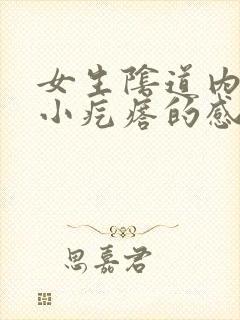 女生陰道内
小疙瘩的感
思嘉君